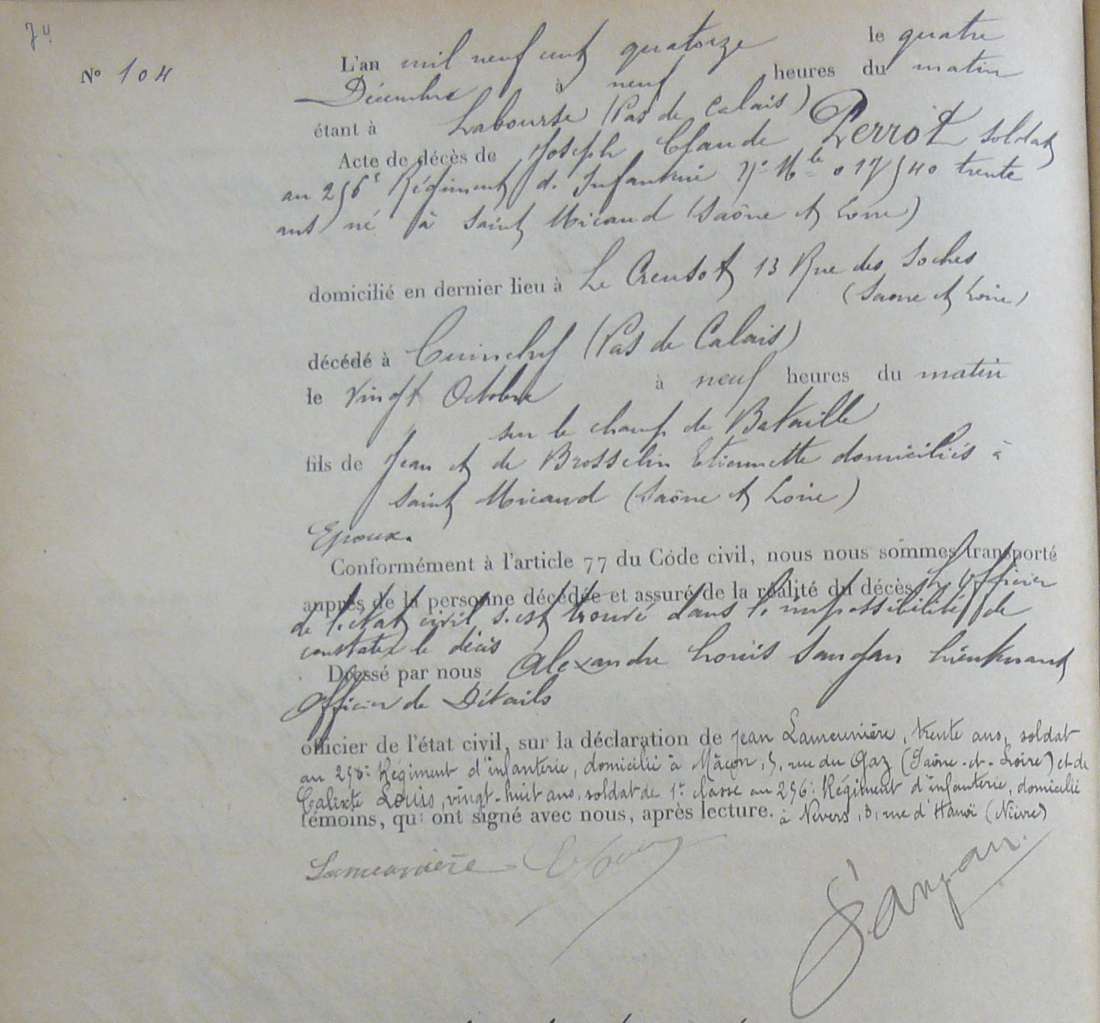 74
N° 104
L'an mil neuf cent quatorze le quatre
Décembre à neuf heures du matin
étant à Labourse (Pas de Calais)
Acte de décès de Joseph Claude Perrot soldat
au 256e Régiment d'Infanterie N° Mle 017540 trente
ans né à Saint Micaud (Saône et Loire)
domicilié en dernier lieu à Le Creusot 13 Rue des Soches
(Saône et Loire)
décédé à Cuinchy (Pas de Calais)
le vingt Octobre à neuf heures du matin
sur le champ de Bataille
fils de Jean et de Brosselin Etiennette domiciliés à
Saint Micaud (Saône et Loire)
Epoux.
Conformément à l'article 77 du Code civil, nous nous sommes transporté
auprès de la personne décédée et assuré de la réalité du décès. L'Officier
de l'état civil s'est trouvé dans l'impossibilité de
constater le décès
Dressé par nous Alexandre Louis Sanjan Lieutenant
Officier de Détails
officier de l'état civil, sur la déclaration de Jean Lameunière, trente ans, soldat
au 256e Régiment d'infanterie, domicilié à Mâcon, 5, rue du Gaz (Saône-et-Loire) et de
Calixte Louis, vingt-huit ans, soldat de 1e classe au 256e Régiment d'infanterie, domicilié
témoins, qui ont signé avec nous, après lecture. à Nevers, 3, rue d'Hanoï (Nièvre)
Lameunière
Sanjan